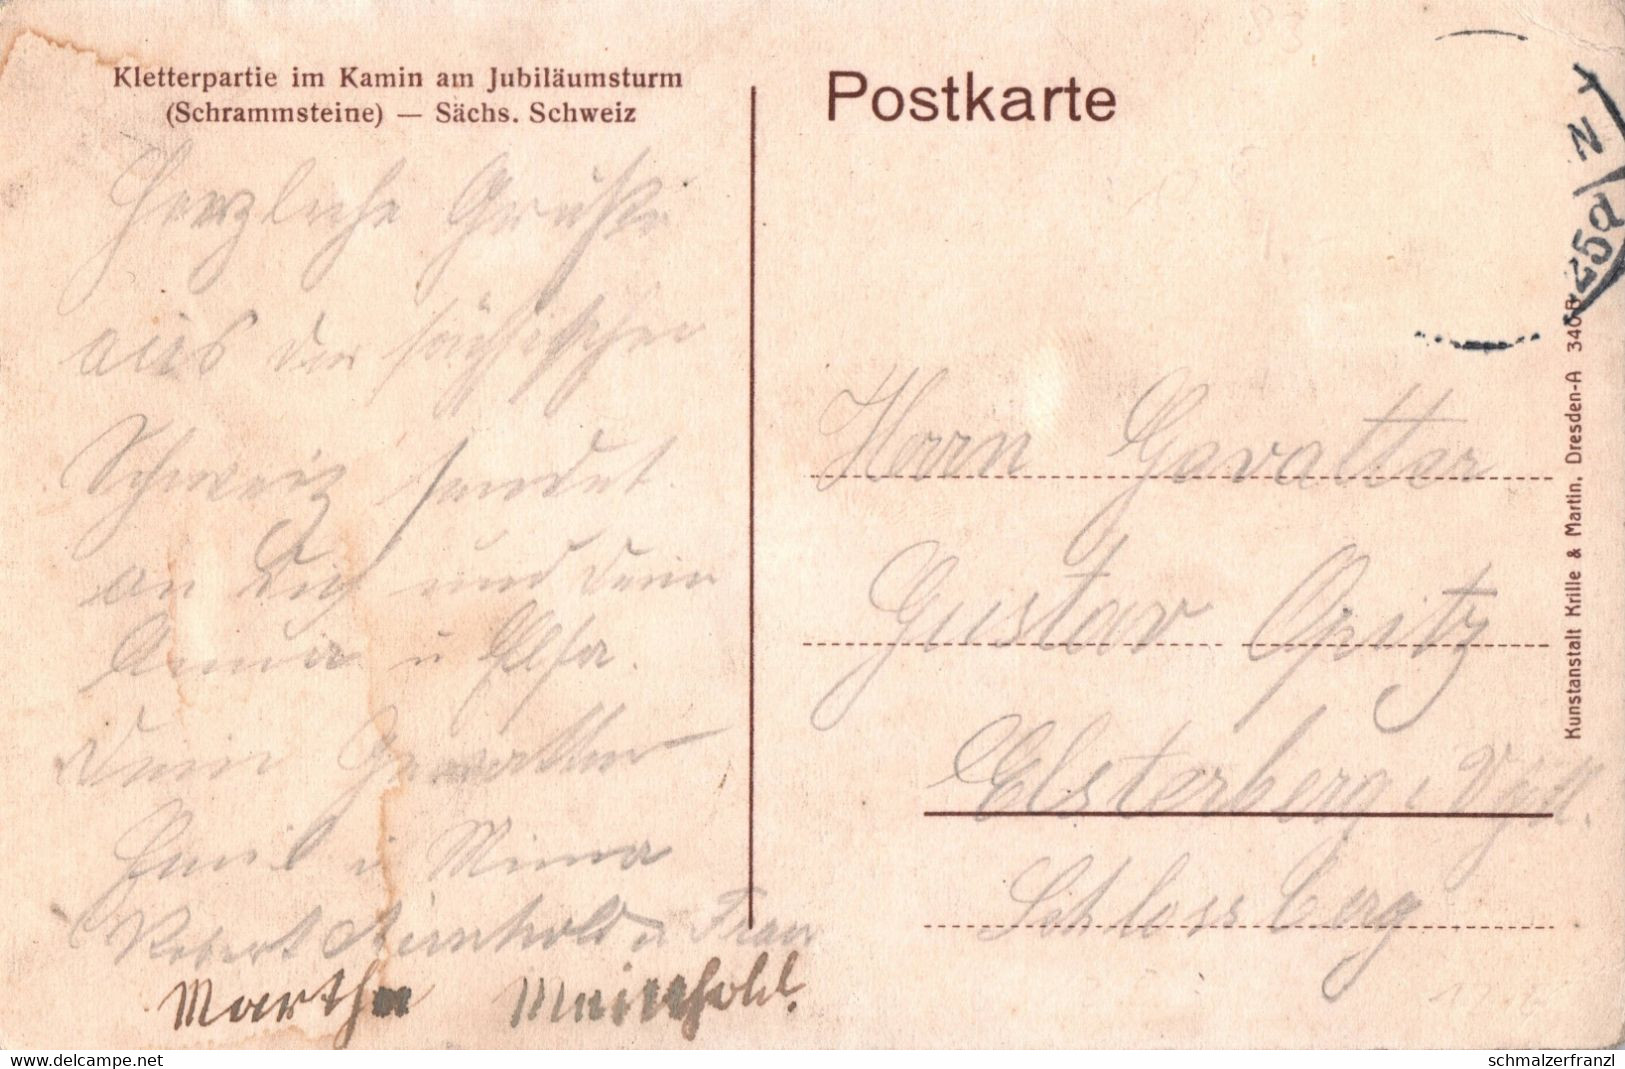 Kletterpartie im Kamin am Jubiläumsturm
(Schrammsteine) — Sächs. Schweiz
Postkarte
Herzliche Grüße
aus der sächsischen
Schweiz sendet
an Dich und Deine
Anna u Elsa.
Deine Gevatter
Emil u Minna
Robert Reinhold u Frau
Martha Meinhold.
Herrn Gevatter
Gustav Opitz
Elsterberg i Vgtl.
Schlossberg
N
25d
Kunstanstalt Krille & Martin, Dresden-A 340 B
delcampe.net
schmalzerfranzl